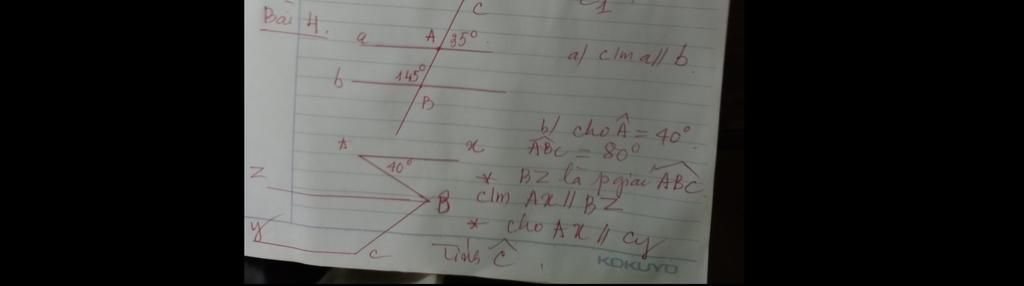 Bài 4.
C
a A 35°
a) c/m a // b
b 145°
B
b) cho Â = 40°
A x ABC = 80°
40° * BZ là pgiác ABC
Z B c/m Ax // BZ
* cho Ax // Cy
y C Tính Ĉ
KOKUYO